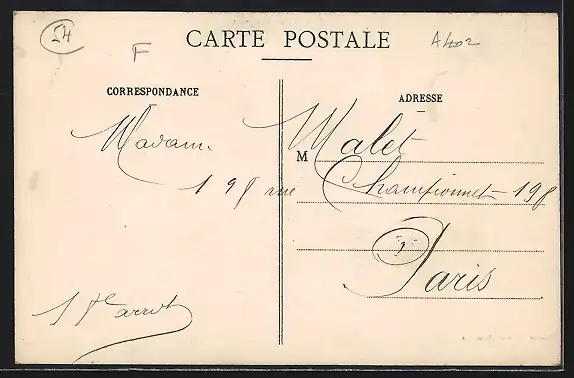 54
F
CARTE POSTALE
A402
CORRESPONDANCE
ADRESSE
Madame
M Malet
198 rue Championnet - 198
Paris